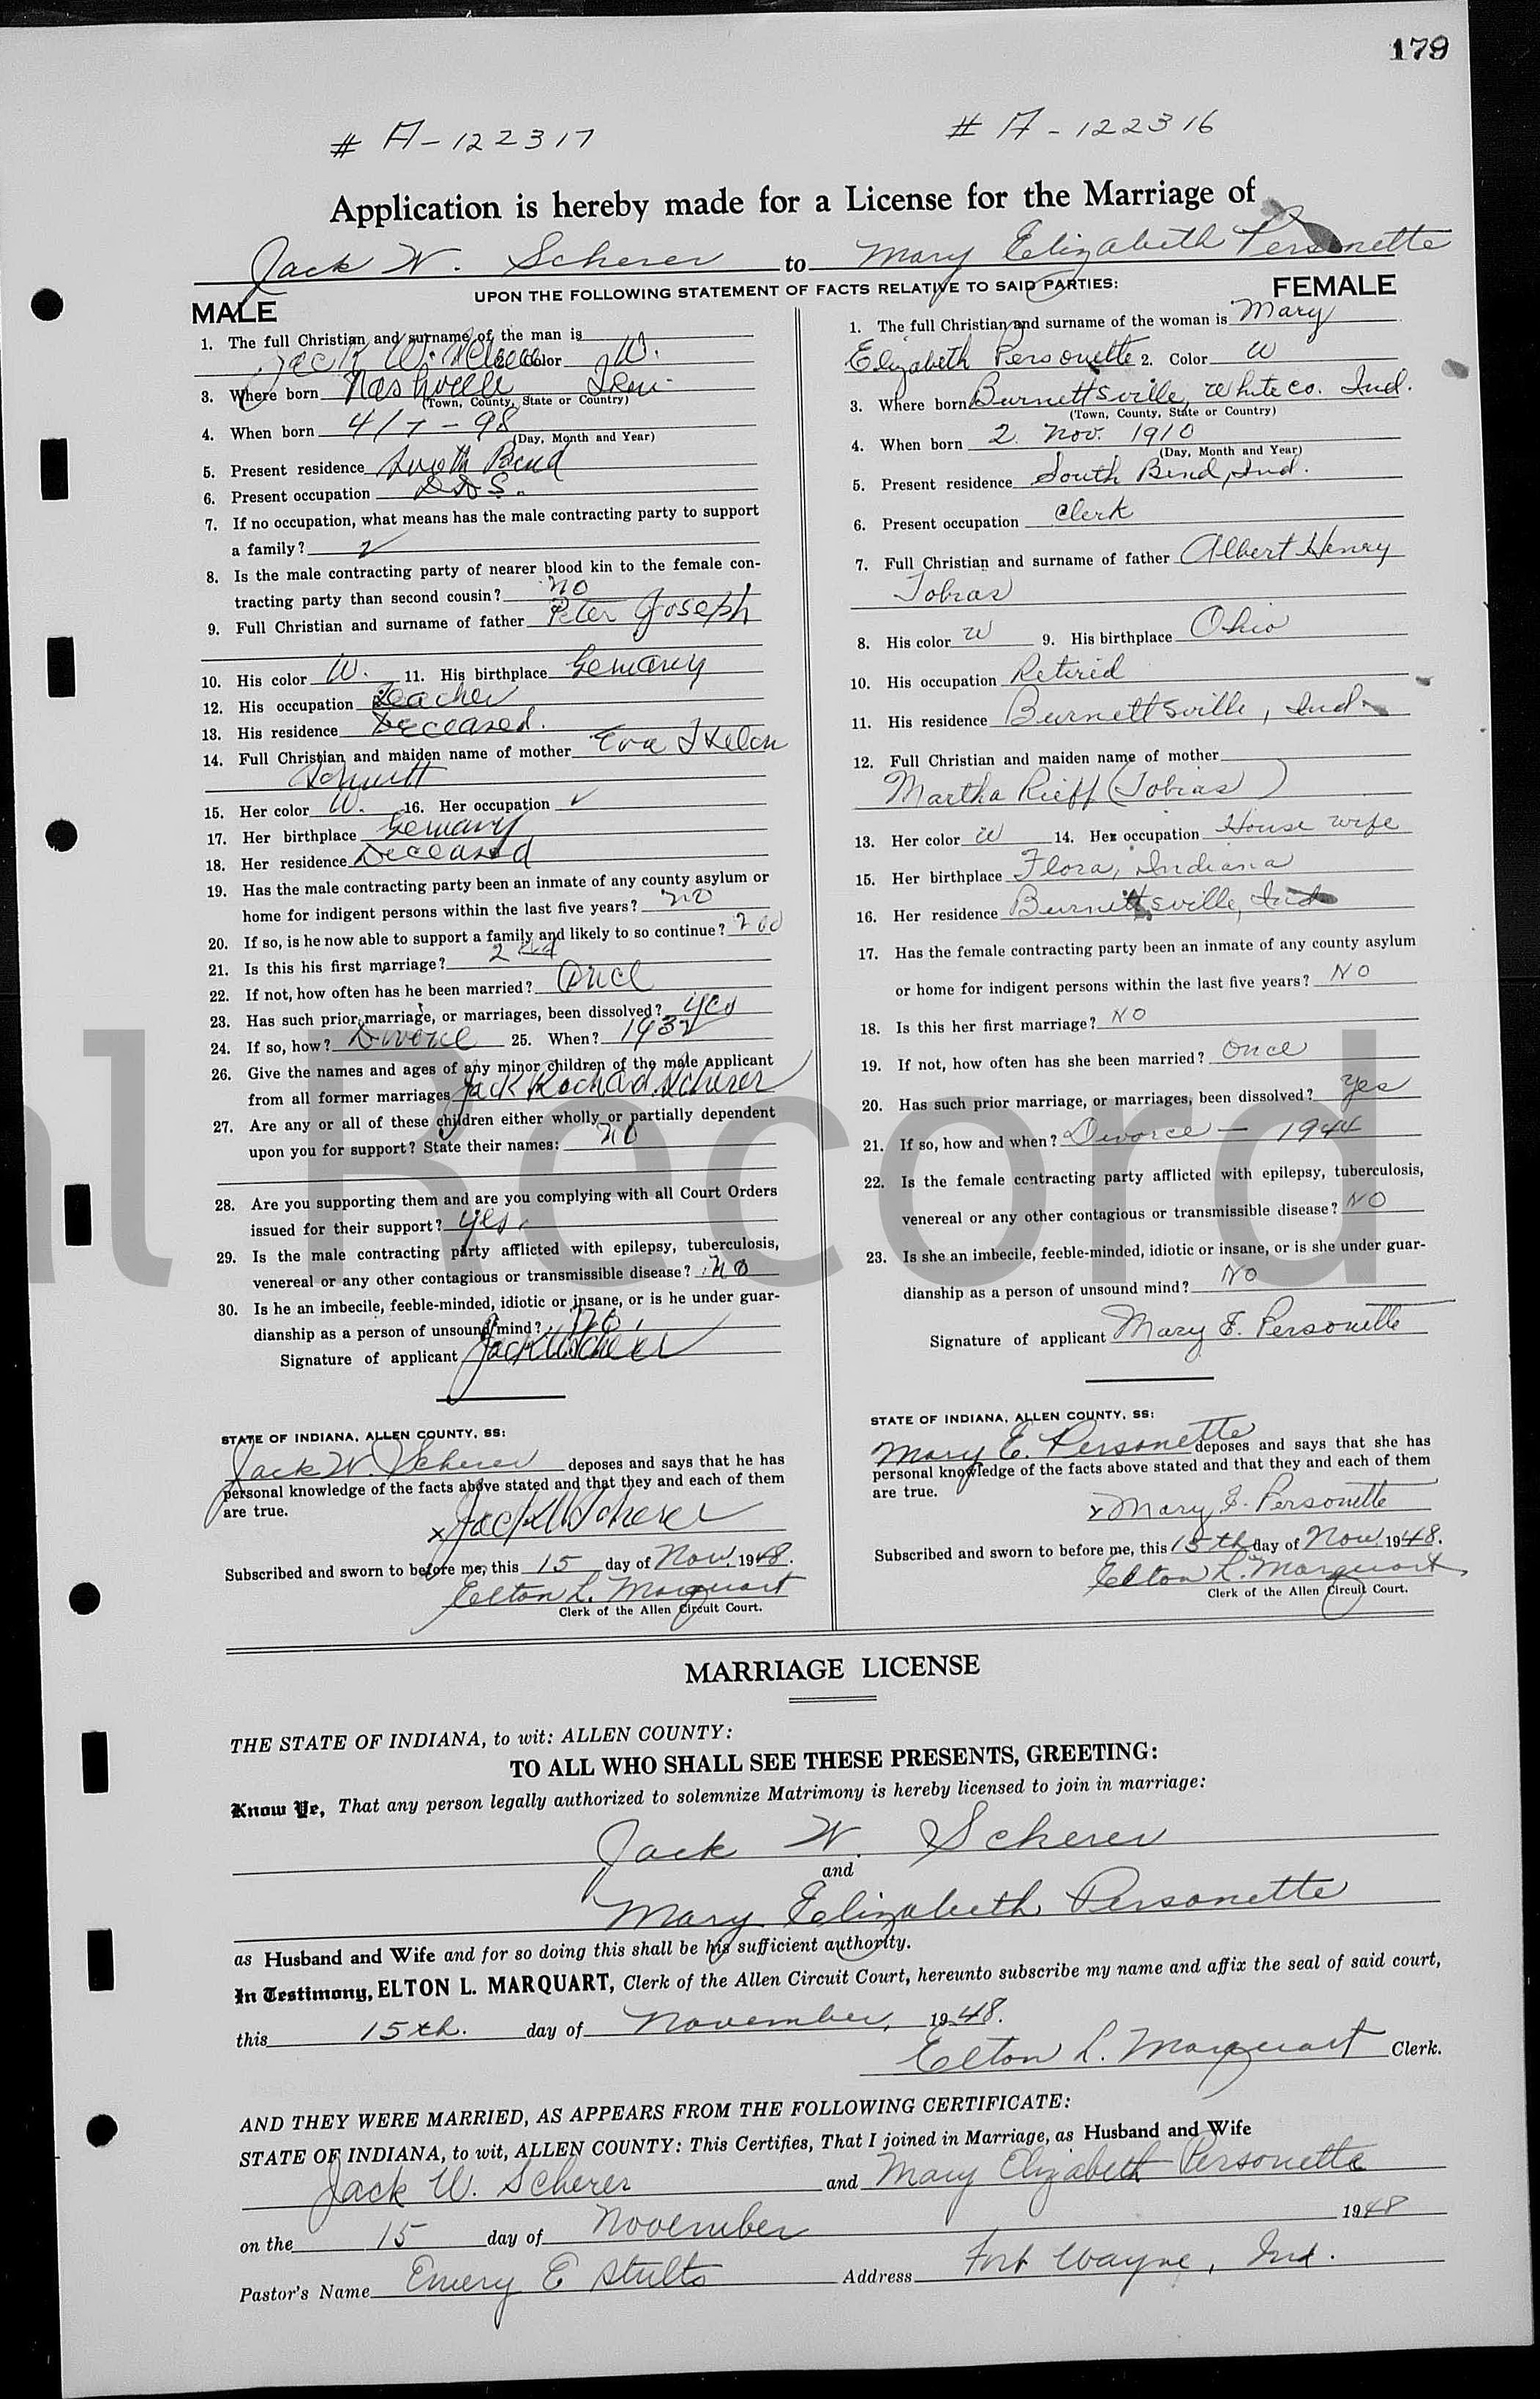 179
# A-122317
# A-122316
Application is hereby made for a License for the Marriage of
Jack W. Scherer to Mary Elizabeth Personette
UPON THE FOLLOWING STATEMENT OF FACTS RELATIVE TO SAID PARTIES:
MALE
1. The full Christian and surname of the man is
Jack W. 2. Color W.
3. Where born Nashville Tenn.
(Town, County, State or Country)
4. When born 4/7-98
(Day, Month and Year)
5. Present residence South Bend
6. Present occupation D.D.S.
7. If no occupation, what means has the male contracting party to support
a family? ✓
8. Is the male contracting party of nearer blood kin to the female con-
tracting party than second cousin? no
9. Full Christian and surname of father Peter Joseph
10. His color W. 11. His birthplace Germany
12. His occupation Teacher
13. His residence Deceased.
14. Full Christian and maiden name of mother Eva
15. Her color W. 16. Her occupation ✓
17. Her birthplace Germany
18. Her residence Deceased
19. Has the male contracting party been an inmate of any county asylum or
home for indigent persons within the last five years? no
20. If so, is he now able to support a family and likely to so continue?
21. Is this his first marriage? 2nd
22. If not, how often has he been married? Once
23. Has such prior marriage, or marriages, been dissolved? yes
24. If so, how? Divorce 25. When? 1932
26. Give the names and ages of any minor children of the male applicant
from all former marriages Jack Richard Scherer
27. Are any or all of these children either wholly or partially dependent
upon you for support? State their names: no
28. Are you supporting them and are you complying with all Court Orders
issued for their support? yes.
29. Is the male contracting party afflicted with epilepsy, tuberculosis,
venereal or any other contagious or transmissible disease? no
30. Is he an imbecile, feeble-minded, idiotic or insane, or is he under guar-
dianship as a person of unsound mind? no.
Signature of applicant Jack W Scherer
STATE OF INDIANA, ALLEN COUNTY, SS:
Jack W. Scherer deposes and says that he has
personal knowledge of the facts above stated and that they and each of them
are true.
x Jack W Scherer
Subscribed and sworn to before me, this 15 day of Nov. 1948.
Elton L. Marquart
Clerk of the Allen Circuit Court.
FEMALE
1. The full Christian and surname of the woman is Mary
Elizabeth Personette 2. Color W
3. Where born Burnettsville, White Co. Ind.
(Town, County, State or Country)
4. When born 2 Nov. 1910
(Day, Month and Year)
5. Present residence South Bend, Ind.
6. Present occupation Clerk
7. Full Christian and surname of father Albert Henry
Tobias
8. His color W 9. His birthplace Ohio
10. His occupation Retired
11. His residence Burnettsville, Ind.
12. Full Christian and maiden name of mother
Martha Rieff (Tobias)
13. Her color W 14. Her occupation House wife
15. Her birthplace Flora, Indiana
16. Her residence Burnettsville, Ind
17. Has the female contracting party been an inmate of any county asylum
or home for indigent persons within the last five years? NO
18. Is this her first marriage? NO
19. If not, how often has she been married? Once
20. Has such prior marriage, or marriages, been dissolved? Yes
21. If so, how and when? Divorce - 1944
22. Is the female contracting party afflicted with epilepsy, tuberculosis,
venereal or any other contagious or transmissible disease? NO
23. Is she an imbecile, feeble-minded, idiotic or insane, or is she under guar-
dianship as a person of unsound mind? NO
Signature of applicant Mary E. Personette
STATE OF INDIANA, ALLEN COUNTY, SS:
Mary E. Personette deposes and says that she has
personal knowledge of the facts above stated and that they and each of them
are true.
x Mary E. Personette
Subscribed and sworn to before me, this 15th day of Nov. 1948.
Elton L. Marquart
Clerk of the Allen Circuit Court.
MARRIAGE LICENSE
THE STATE OF INDIANA, to wit: ALLEN COUNTY:
TO ALL WHO SHALL SEE THESE PRESENTS, GREETING:
Know Ye, That any person legally authorized to solemnize Matrimony is hereby licensed to join in marriage:
Jack W. Scherer
and
Mary Elizabeth Personette
as Husband and Wife and for so doing this shall be his sufficient authority.
In Testimony, ELTON L. MARQUART, Clerk of the Allen Circuit Court, hereunto subscribe my name and affix the seal of said court,
this 15th. day of November, 1948.
Elton L. Marquart Clerk.
AND THEY WERE MARRIED, AS APPEARS FROM THE FOLLOWING CERTIFICATE:
STATE OF INDIANA, to wit, ALLEN COUNTY: This Certifies, That I joined in Marriage, as Husband and Wife
Jack W. Scherer and Mary Elizabeth Personette
on the 15 day of November 1948
Pastor's Name Emery E Stults Address Fort Wayne, Ind.
l Record